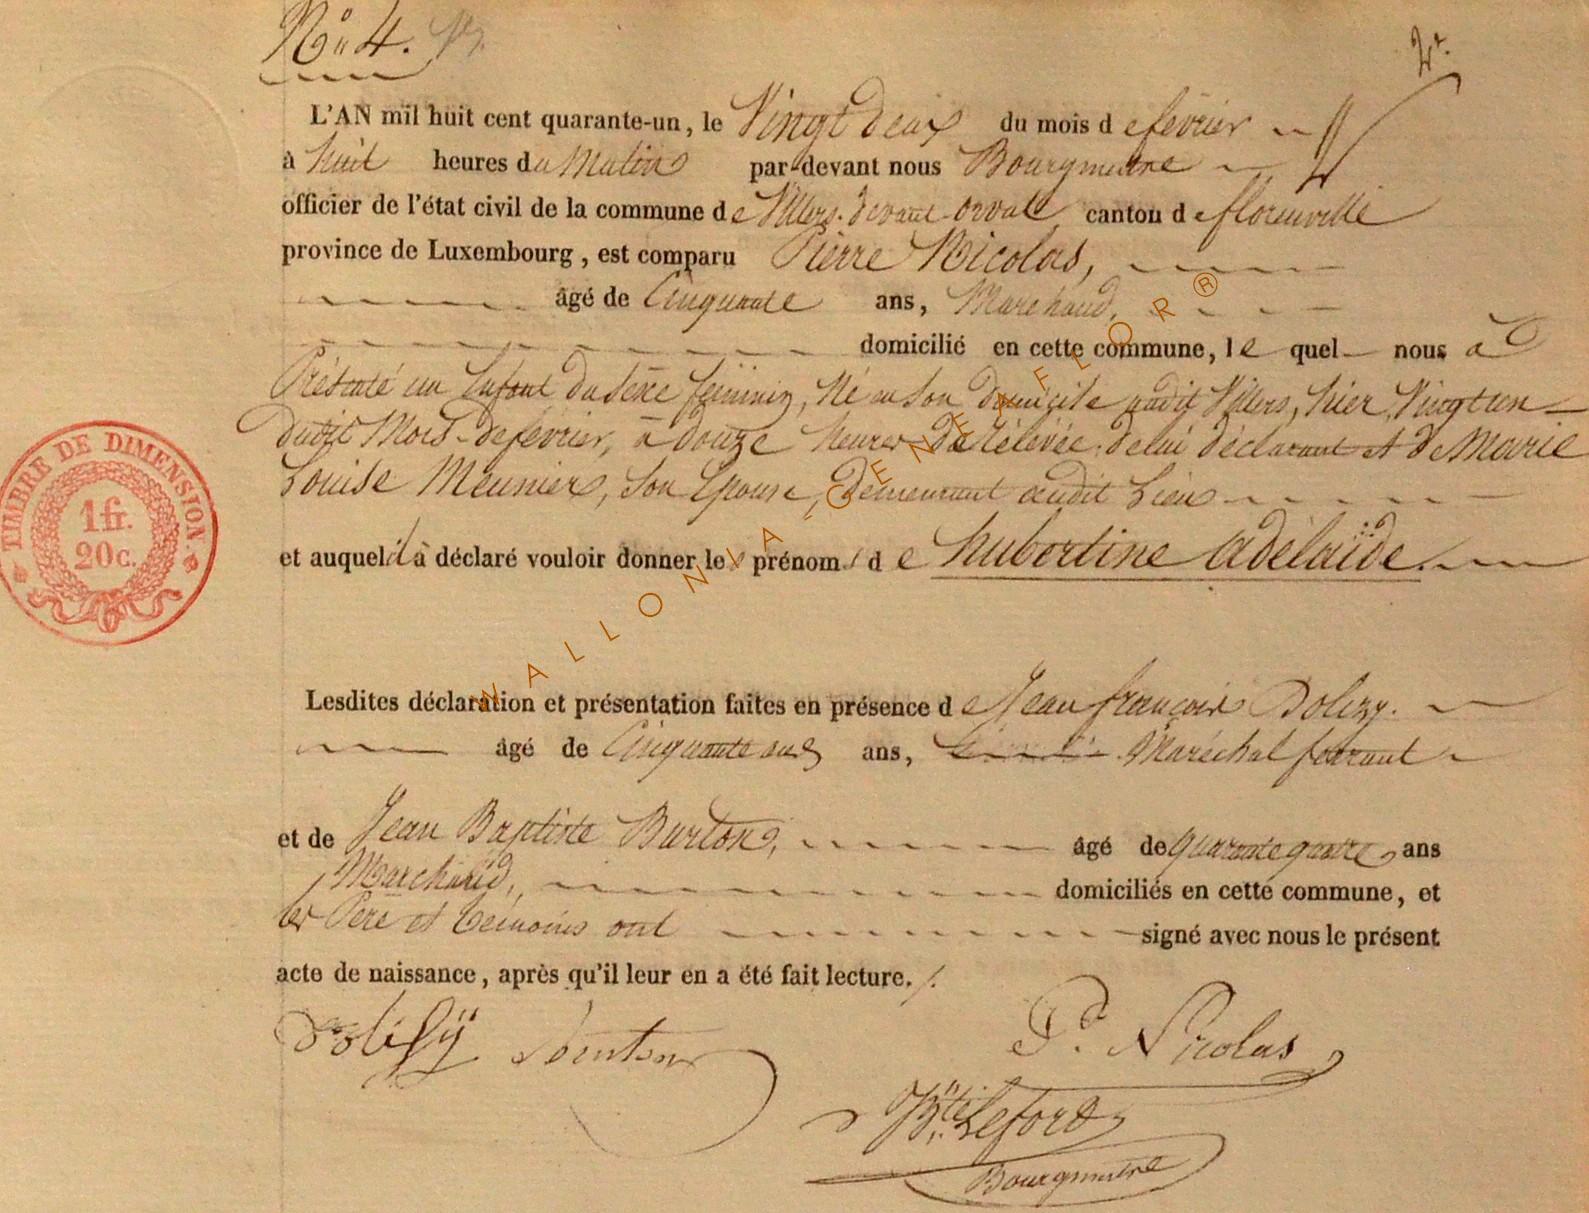 N° 4.
2r.
L'AN mil huit cent quarante-un, le Vingt deux du mois de février
à huit heures du Matin par-devant nous Bourgmestre
officier de l'état civil de la commune de Villers-devant-orval canton de florenville
province de Luxembourg, est comparu Pierre Nicolas,
âgé de Cinquante ans, Marchand,
domicilié en cette commune, le quel nous à
Présenté un Enfant du Sexe féminin, Né en Son domicile audit Villers, hier Vingt un
dudit Mois de février, à douze heures de relevée, de lui déclarant et de Marie
Louise Meunier, Son Epouse, demeurant audit Lieu
et auquel il à déclaré vouloir donner les prénoms de hubertine adélaïde.
Lesdites déclaration et présentation faites en présence de Jean françois Dolizy.
âgé de Cinquante ans, Maréchal ferrant
et de Jean Baptiste Burton, âgé de quarante quatre ans
Marchand, domiciliés en cette commune, et
les Père et témoins ont signé avec nous le présent
acte de naissance, après qu'il leur en a été fait lecture.
Dolizÿ Burton P. Nicolas
Bte Lefort
Bourgmestre
TIMBRE DE DIMENSION.
1 fr.
20 c.
WALLONIA-GENEAFLOR®